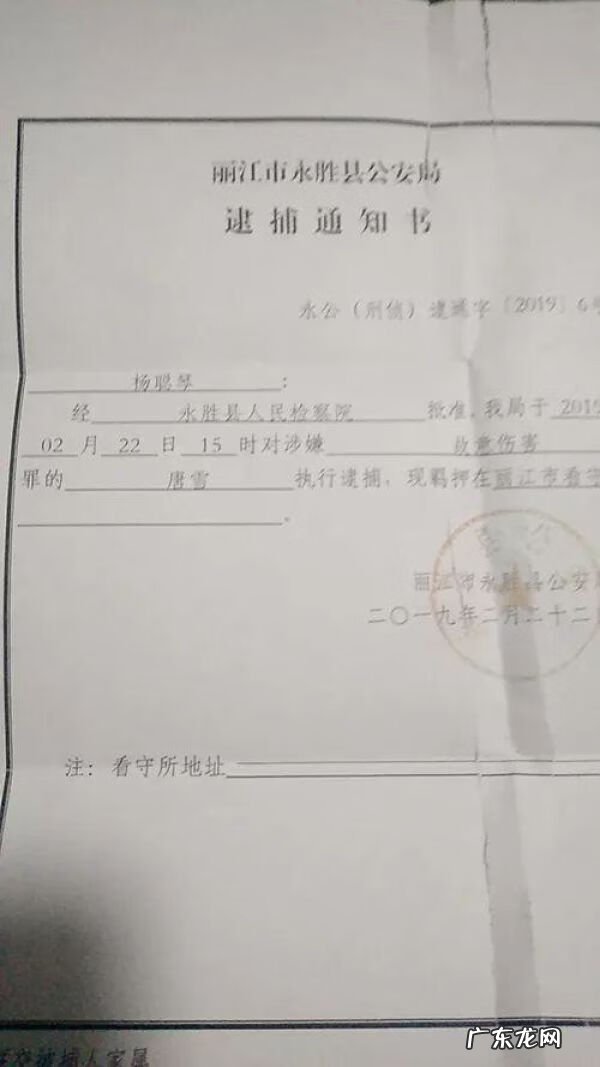 丽江市永胜县公安局
逮捕通知书
永公（刑侦）逮通字〔2019〕6号
杨聪琴：
经 永胜县人民检察院 批准，我局于 2019
02 月 22 日 15 时对涉嫌 故意伤害
罪的 唐雪 执行逮捕，现羁押在 丽江市看守
。
丽江市永胜县公安局
二〇一九年二月二十二
注：看守所地址
被捕人家属
广东龙网